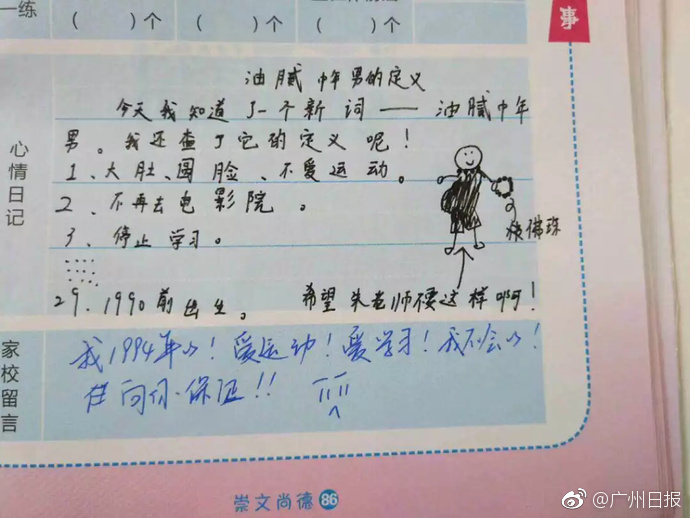 一练
( )个 ( )个 ( )个
事
心情日记
油腻中年男的定义
今天我知道了一个新词——油腻中年
男。我还查了它的定义呢！
1、大肚、圆脸、不爱运动。
2、不再去电影院。
3、停止学习。
29、1990前出生。 希望朱老师不要这样啊！
佛珠
家校留言
我1994年的！爱运动！爱学习！我不会的！
向你保证！！
崇文尚德 86
@广州日报